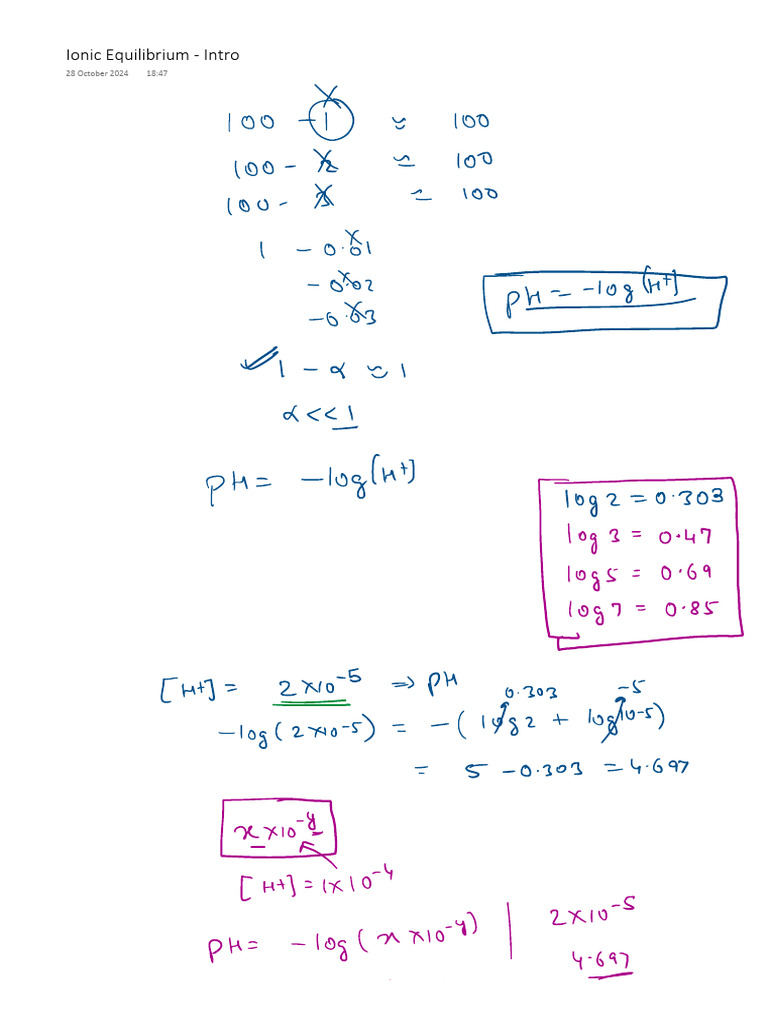 Ionic Equilibrium - Intro
28 October 2024 18:47
100 - 1 ≈ 100
100 - 2 ≈ 100
100 - 3 ≈ 100
1 - 0.01
- 0.02
- 0.03
PH = -log[H+]
1 - α ≈ 1
α << 1
PH = -log[H+]
log 2 = 0.303
log 3 = 0.47
log 5 = 0.69
log 7 = 0.85
[H+] = 2×10-5 ⇒ PH
0.303 -5
-log(2×10-5) = -(log 2 + log 10-5)
= 5 - 0.303 = 4.697
x×10-y
[H+] = 1×10-4
PH = -log(x×10-y) | 2×10-5
4.697